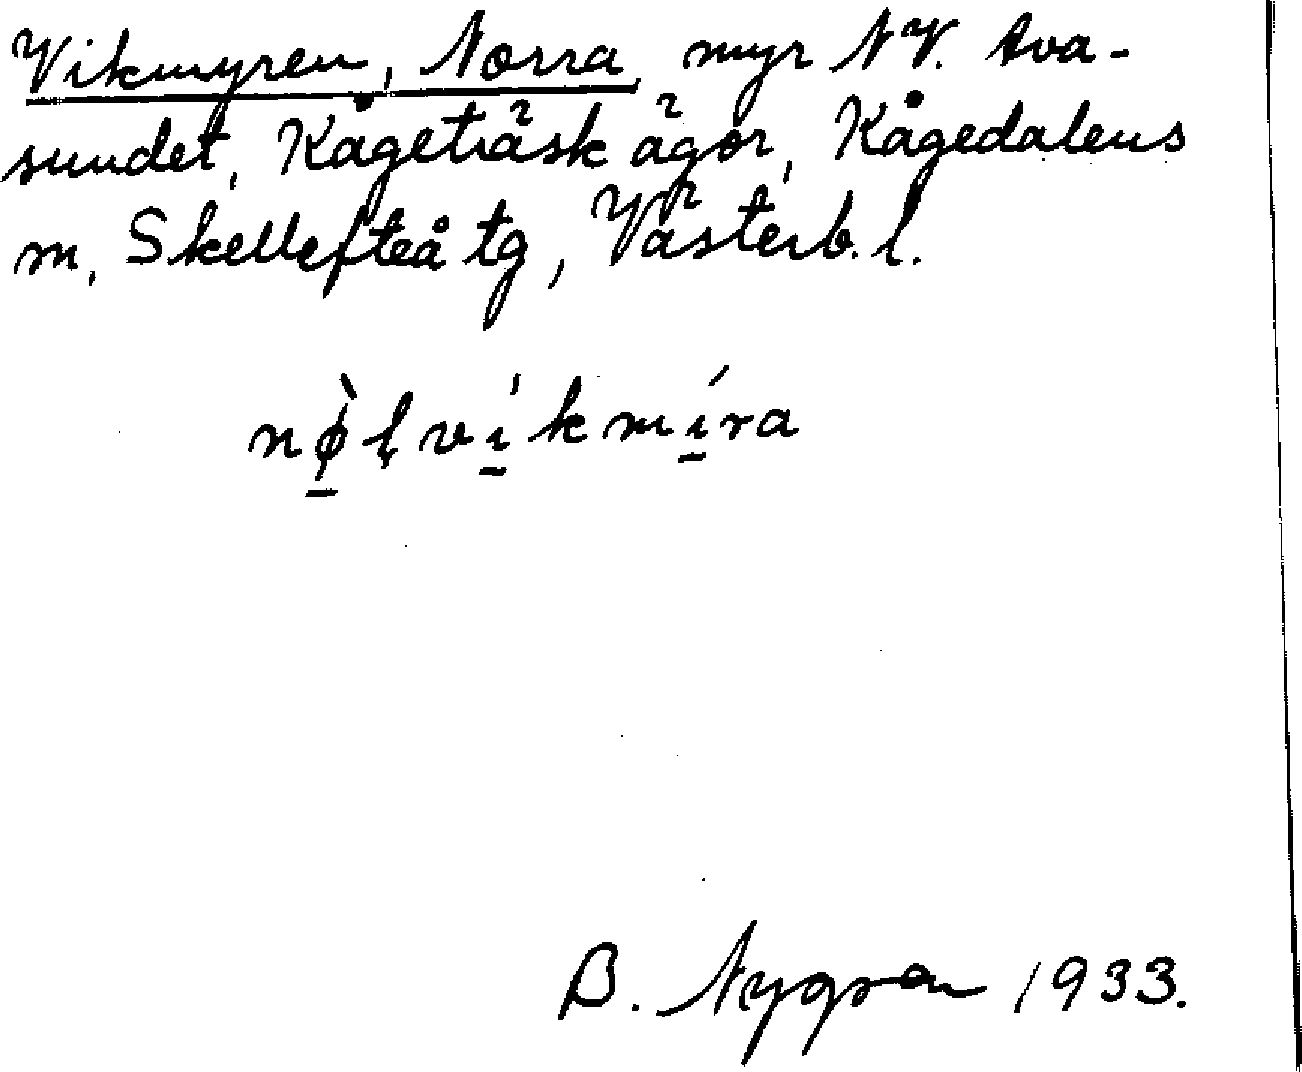 Vikmyren, Norra, myr NV. Ava-
sundet, Kågeträsk ägor, Kågedalens
m, Skellefteå tg, Västerb. l.
nø̠̀ḷví̠kmí̠ra
B. Nygren 1933.